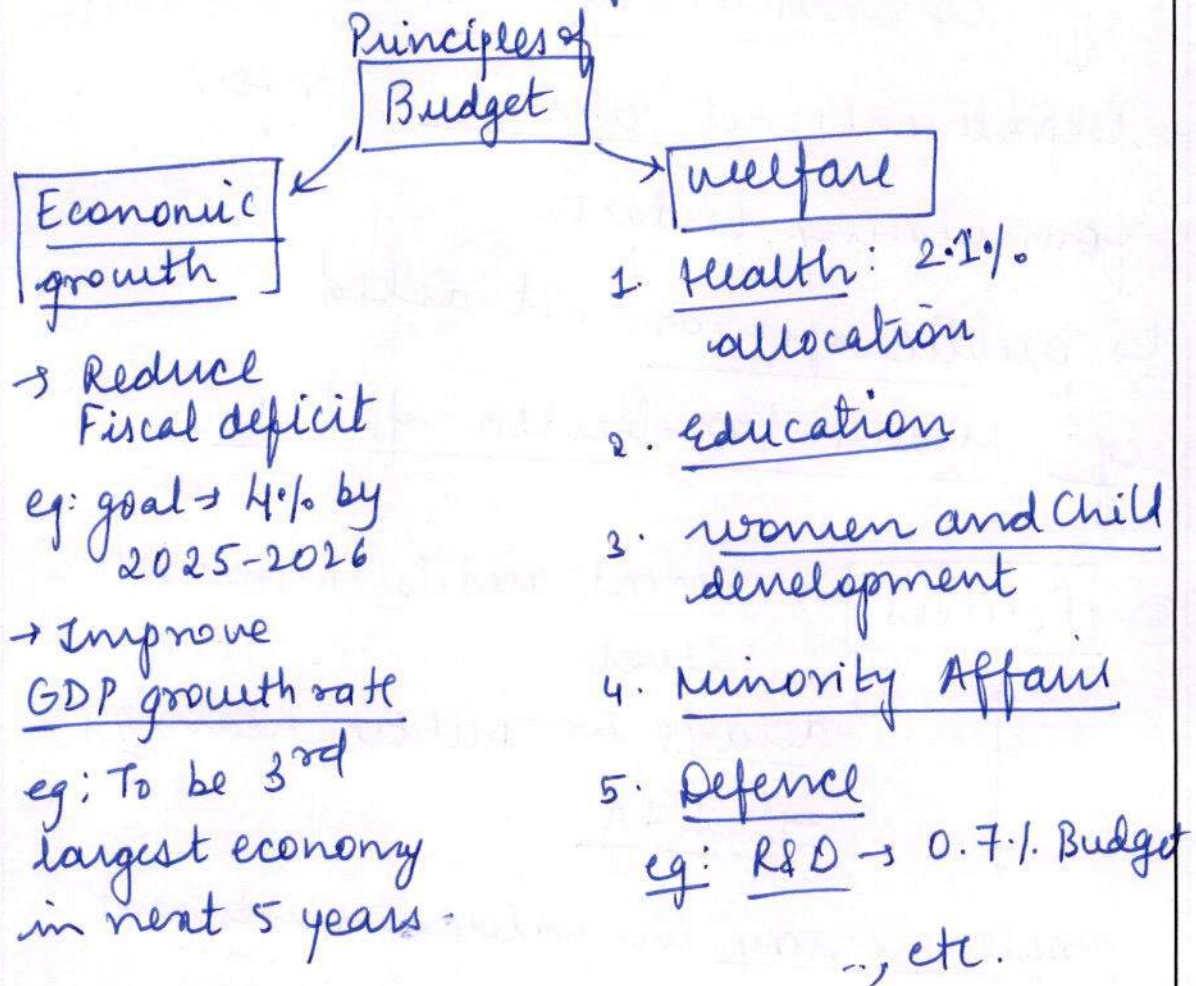 Principles of
Budget
Economic
growth
→ Reduce
Fiscal deficit
eg: goal → 4% by
2025-2026
→ Improve
GDP growth rate
eg: To be 3rd
largest economy
in next 5 years.
welfare
1. Health: 2.1%
allocation
2. Education
3. women and Child
development
4. Minority Affairs
5. Defence
eg: R&D → 0.7% Budget
.., etc.